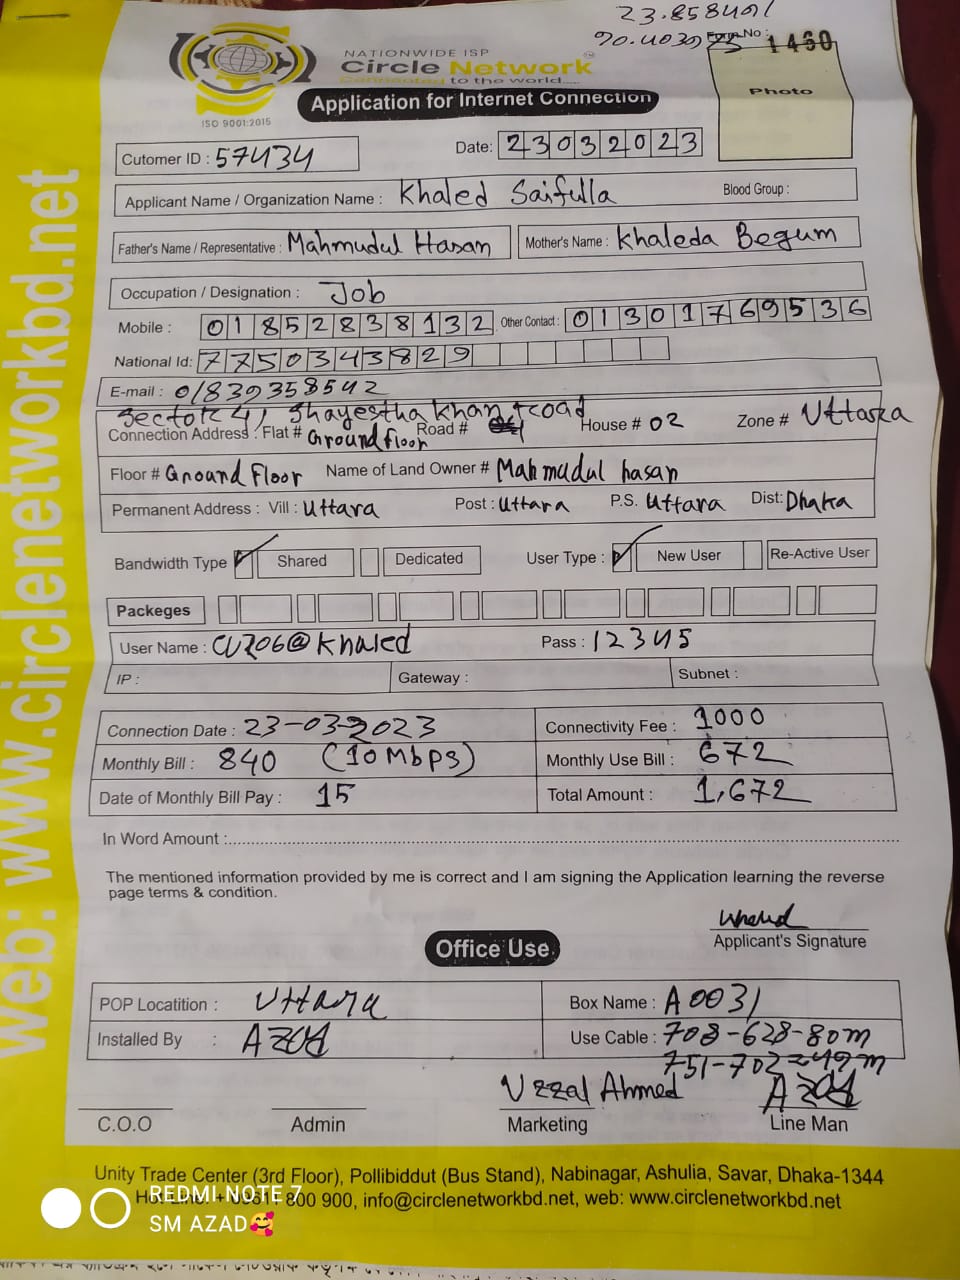 23.858491
90.403973
Form No : 1460
NATIONWIDE ISP
Circle Network
Connected to the world....
ISO 9001:2015
Application for Internet Connection
Photo
Cutomer ID : 57434
Date: 23032023
Applicant Name / Organization Name : Khaled Saifulla Blood Group :
Father's Name / Representative : Mahmudul Hasan Mother's Name : Khaleda Begum
Occupation / Designation : Job
Mobile : 01852838132 Other Contact : 01301769536
National Id: 7750343829
E-mail : 01839358542
Sector 4, Shayestha Khan road
Connection Address : Flat # Ground floor Road # House # 02 Zone # Uttara
Floor # Ground Floor Name of Land Owner # Mahmudul hasan
Permanent Address : Vill : Uttara Post : Uttara P.S. Uttara Dist: Dhaka
Bandwidth Type Shared Dedicated User Type : New User Re-Active User
Packeges
User Name : Pass : 12345
IP : Gateway : Subnet :
Connection Date : 23-03-2023 Connectivity Fee : 1000
Monthly Bill : 840 (10Mbps) Monthly Use Bill : 672
Date of Monthly Bill Pay : 15 Total Amount : 1,672
In Word Amount :
The mentioned information provided by me is correct and I am signing the Application learning the reverse
page terms & condition.
Khaled
Applicant's Signature
Office Use
POP Locatition : Uttara Box Name : A0031
Installed By : AZAD Use Cable : 708-628-80m
751-702=49m
Uzzal Ahmed AZAD
C.O.O Admin Marketing Line Man
Unity Trade Center (3rd Floor), Pollibiddut (Bus Stand), Nabinagar, Ashulia, Savar, Dhaka-1344
800 900, info@circlenetworkbd.net, web: www.circlenetworkbd.net
REDMI NOTE 7
SM AZAD🥰
web: www.circlenetworkbd.net